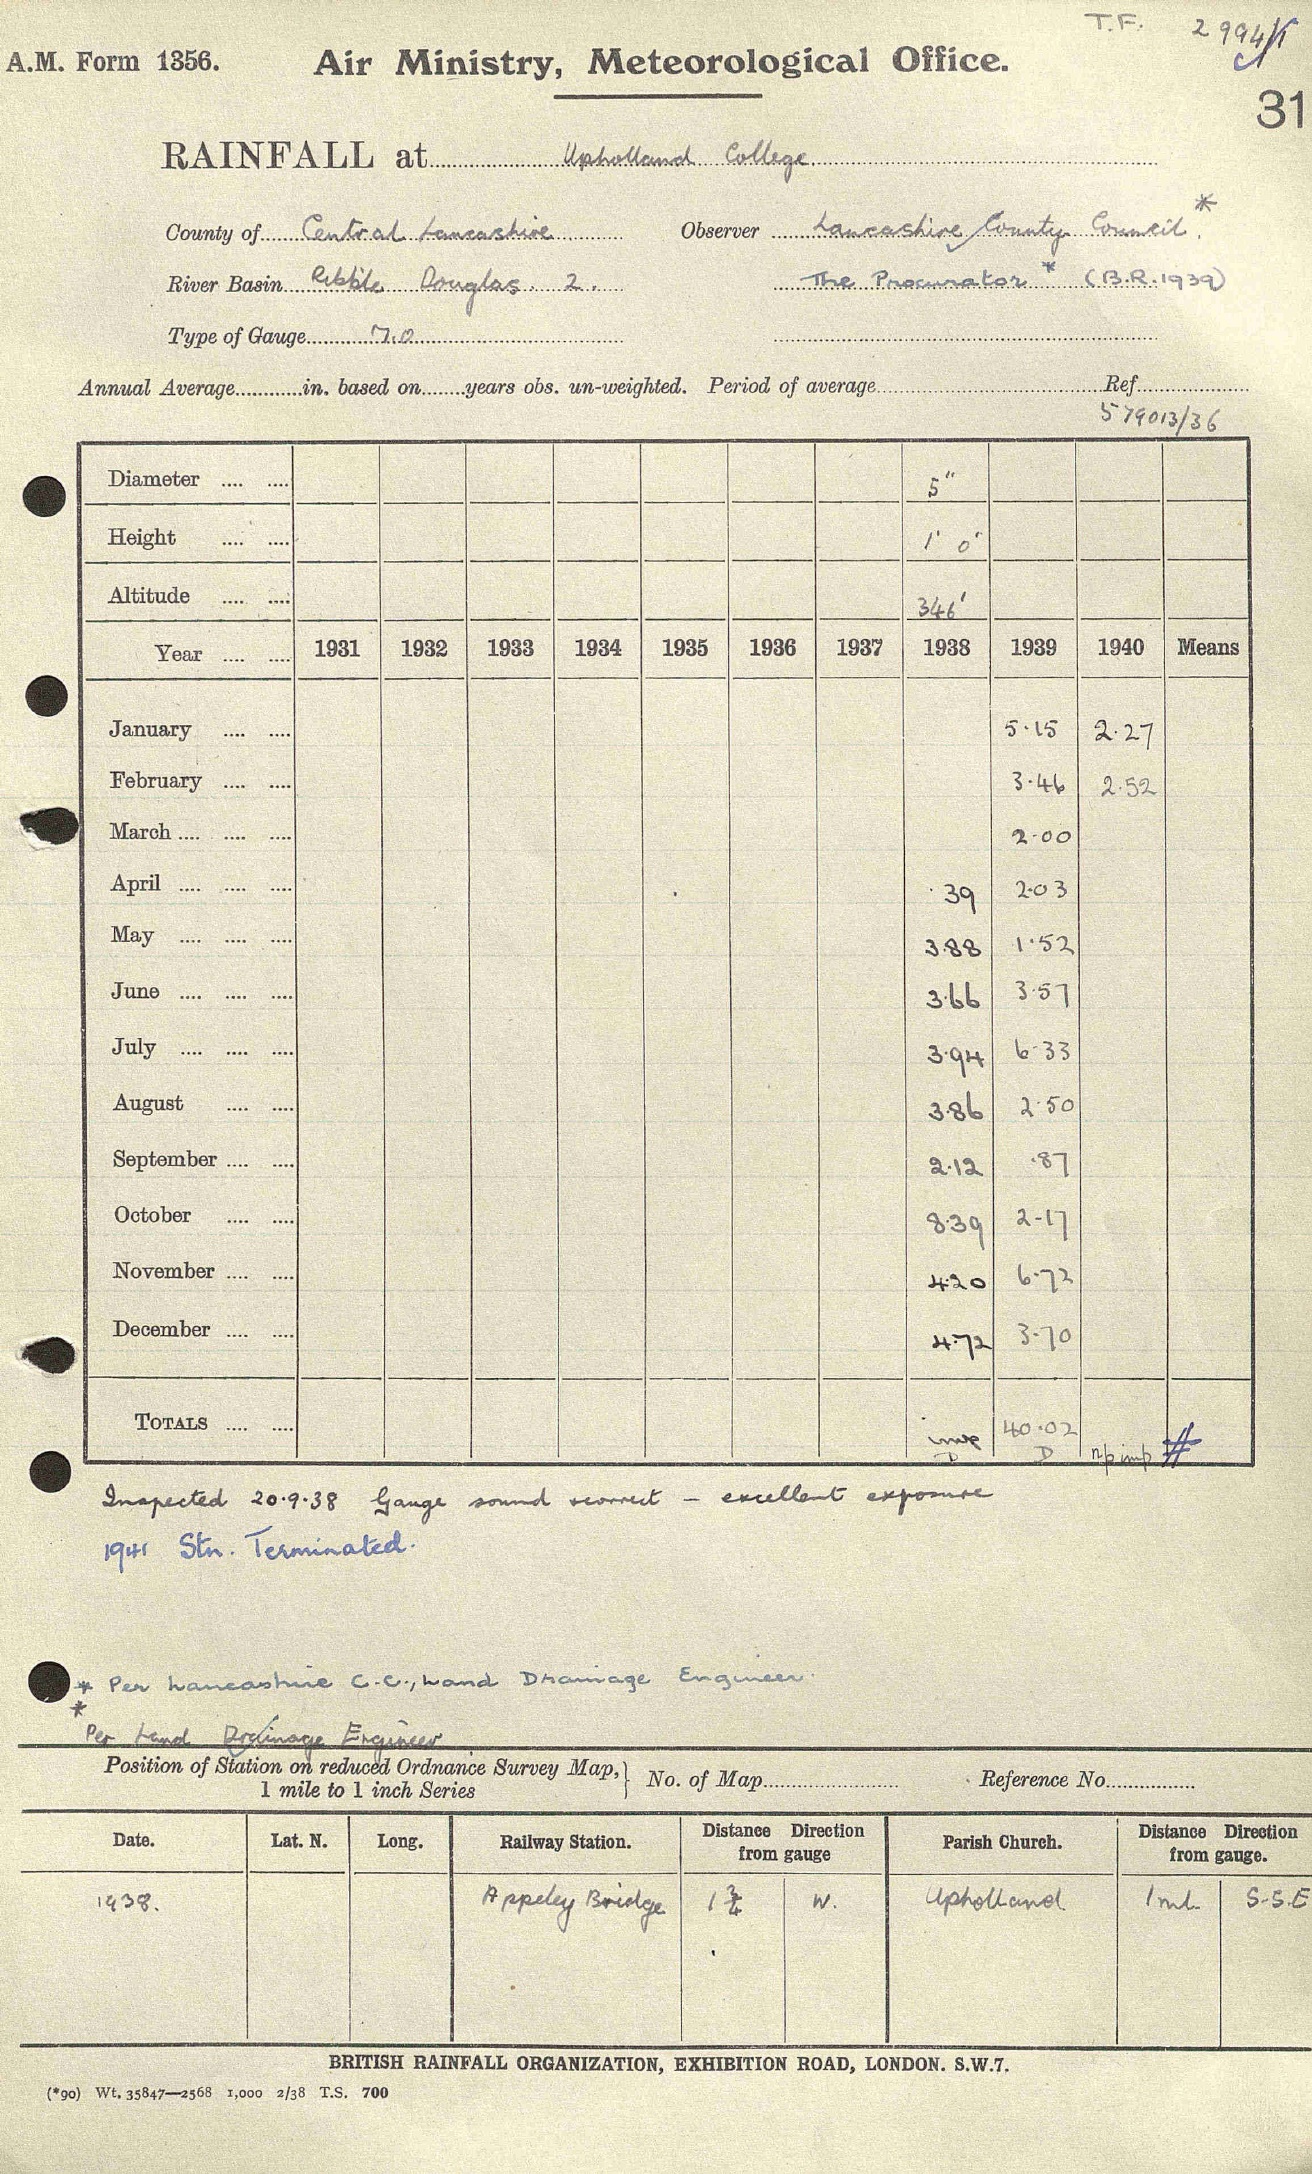 T.F. 2994/1
A.M. Form 1356. Air Ministry, Meteorological Office.
31
RAINFALL at Upholland College
County of Central Lancashire Observer Lancashire County Council *
River Basin Ribble Douglas. 2. The Procurator * (B.R.1939)
Type of Gauge 7.0
Annual Average............in. based on........years obs. un-weighted. Period of average............ Ref............
579013/36
Diameter .... .... 5"
Height .... .... 1' 0"
Altitude .... .... 346'
Year .... .... 1931 1932 1933 1934 1935 1936 1937 1938 1939 1940 Means
January .... .... 5.15 2.27
February .... .... 3.46 2.52
March .... .... .... 2.00
April .... .... .... .39 2.03
May .... .... .... 3.88 1.52
June .... .... .... 3.66 3.57
July .... .... .... 3.94 6.33
August .... .... 3.86 2.50
September .... .... 2.12 .87
October .... .... 8.39 2-17
November .... .... 4.20 6.72
December .... .... 4.72 3.70
TOTALS .... .... 40.02
D D n/p imp #
Inspected 20.9.38 Gauge sound & correct - excellent exposure
1941 Stn. Terminated.
* Per Lancashire C.C., Land Drainage Engineer.
* Per Land Drainage Engineer
Position of Station on reduced Ordnance Survey Map, } No. of Map............ Reference No............
1 mile to 1 inch Series
Date. Lat. N. Long. Railway Station. Distance Direction from gauge Parish Church. Distance Direction from gauge.
1938. Appeley Bridge 1 3/4 W. Upholland 1 ml. S-S.E
BRITISH RAINFALL ORGANIZATION, EXHIBITION ROAD, LONDON. S.W.7.
(*90) Wt. 35847—2568 1,000 2/38 T.S. 700